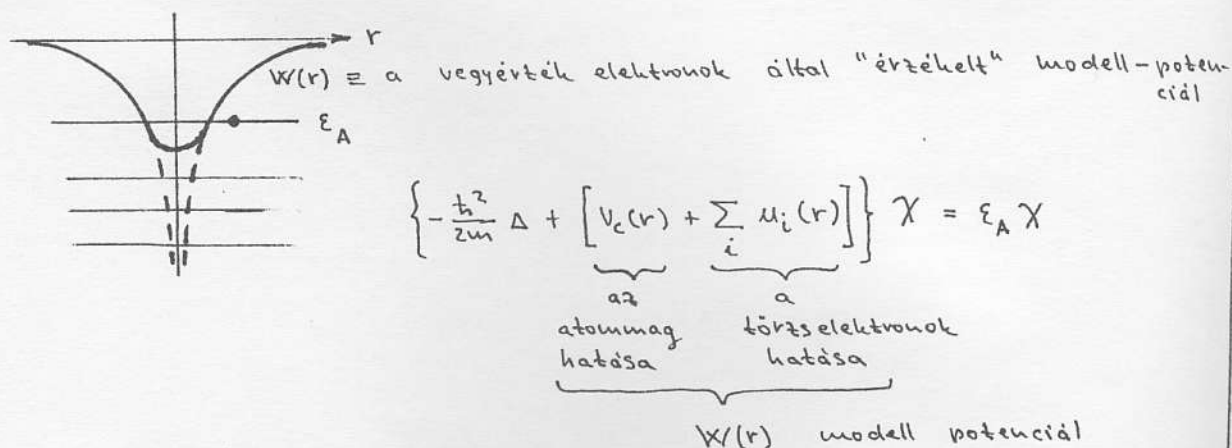 r
W(r) ≡ a vegyérték elektronok által "érzékelt" modell-poten-
ciál
ε_A
{-ħ²/2m Δ + [V_c(r) + ∑_i u_i(r)]} χ = ε_A χ
az a
atommag törzselektronok
hatása hatása
W(r) modell potenciál